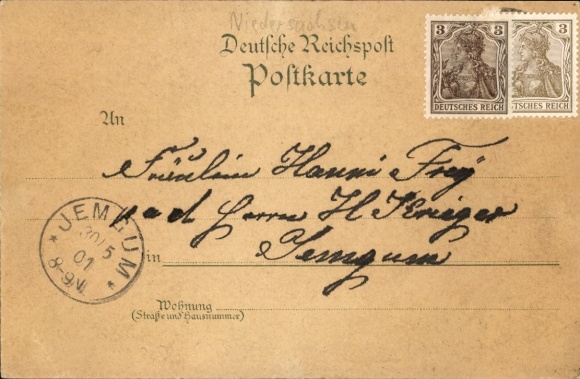 Niedersachsen
Deutsche Reichspost
Postkarte
3 3
DEUTSCHES REICH
3
DEUTSCHES REICH
An
Fräulein Hanni Frey
Herrn H Krüger
in Jemgum
JEMGUM
30/5
01
8-9V.
Wohnung
(Straße und Hausnummer)